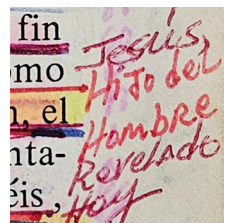 fin
omo
n, el
nta-
éis,
Jesús,
Hijo del
Hombre
Revelado
Hoy